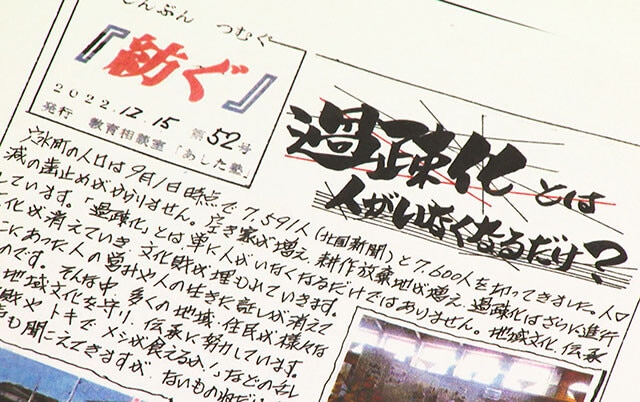 しんぶん つむぐ
『紡ぐ』
2022.12.15 第52号
発行 教育相談室「あした塾」
過疎化とは
人がいなくなるだけ?
穴水町の人口は9月1日時点で7,591人(北國新聞)と7,600人を切ってきました。人口
減の歯止めがかかりません。空き家が増え、耕作放棄地が増え、過疎化はさらに進行
しています。「過疎化」とは単に人がいなくなるだけではありません。地域文化、伝承
文化が消えていき、文化財が埋もれていきます。
こにあった人の営みや人の生きた証しが消えて
のです。そんな中、多くの地域住民が様々な
地域文化を守り、伝承に努力しています。
トキでメシが食えるか!」などの
も聞こえてきますが、ないものねだ